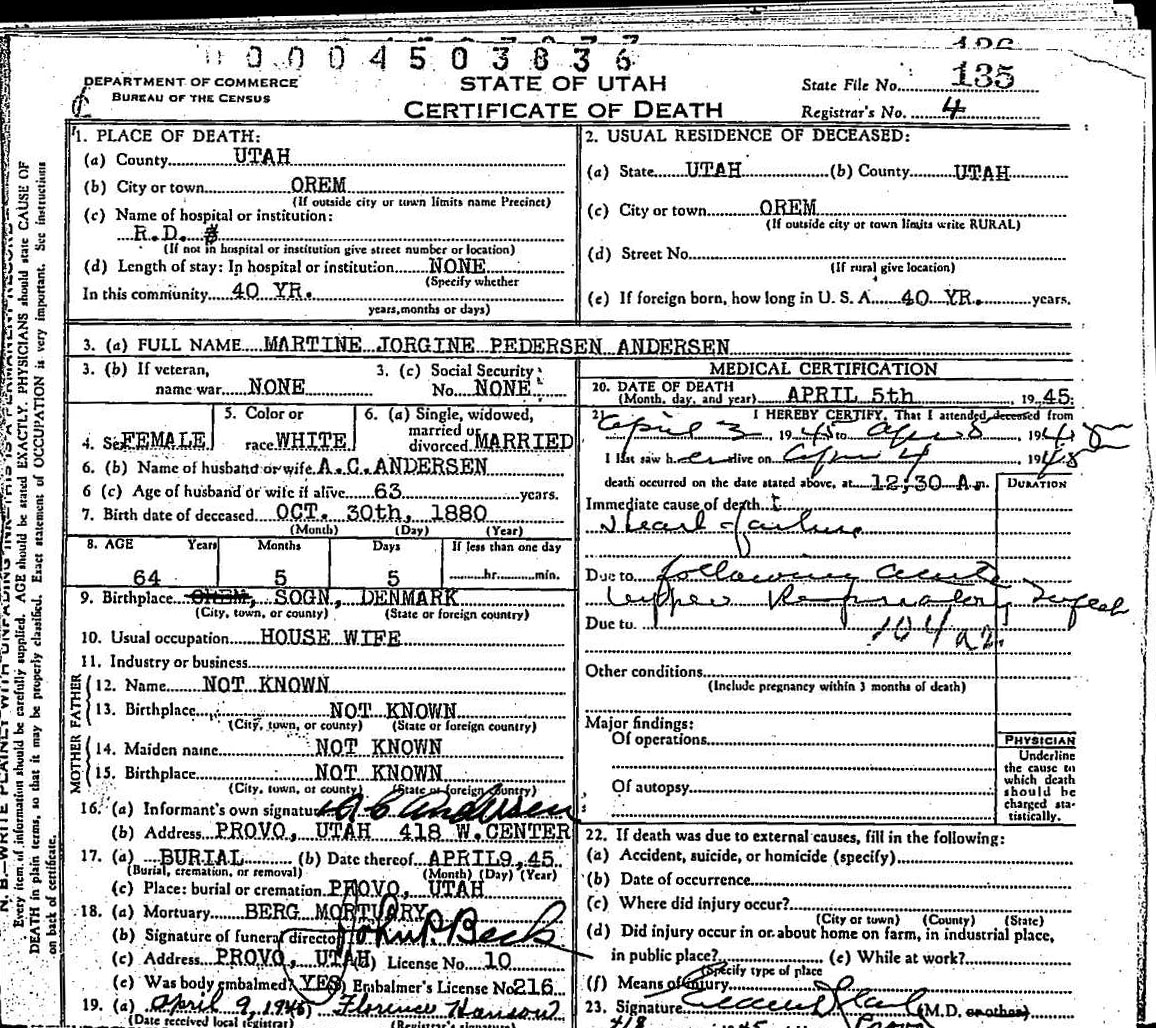 0004503836
126
DEPARTMENT OF COMMERCE
BUREAU OF THE CENSUS
STATE OF UTAH
CERTIFICATE OF DEATH
State File No. 135
Registrar's No. 4
1. PLACE OF DEATH:
(a) County UTAH
(b) City or town OREM
(If outside city or town limits name Precinct)
(c) Name of hospital or institution:
R.D. #
(If not in hospital or institution give street number or location)
(d) Length of stay: In hospital or institution NONE
(Specify whether
In this community 40 YR.
years, months or days)
2. USUAL RESIDENCE OF DECEASED:
(a) State UTAH (b) County UTAH
(c) City or town OREM
(If outside city or town limits write RURAL)
(d) Street No.
(If rural give location)
(e) If foreign born, how long in U. S. A. 40 YR. years.
3. (a) FULL NAME MARTINE JORGINE PEDERSEN ANDERSEN
3. (b) If veteran, name war NONE
3. (c) Social Security No. NONE
4. Sex FEMALE
5. Color or race WHITE
6. (a) Single, widowed, married or divorced MARRIED
6. (b) Name of husband or wife A.C. ANDERSEN
6 (c) Age of husband or wife if alive 63 years.
7. Birth date of deceased OCT. 30th, 1880
(Month) (Day) (Year)
8. AGE Years Months Days If less than one day
64 5 5 hr. min.
9. Birthplace OREM, SOGN, DENMARK
(City, town, or county) (State or foreign country)
10. Usual occupation HOUSE WIFE
11. Industry or business
FATHER
12. Name NOT KNOWN
13. Birthplace NOT KNOWN
(City, town, or county) (State or foreign country)
MOTHER
14. Maiden name NOT KNOWN
15. Birthplace NOT KNOWN
(City, town, or county) (State or foreign country)
16. (a) Informant's own signature A C Andersen
(b) Address PROVO, UTAH 418 W.CENTER
17. (a) BURIAL (b) Date thereof APRIL 9, 45
(Burial, cremation, or removal) (Month) (Day) (Year)
(c) Place: burial or cremation PROVO, UTAH
18. (a) Mortuary BERG MORTUARY
(b) Signature of funeral director John P. Beck
(c) Address PROVO, UTAH License No. 10
(c) Was body embalmed? YES Embalmer's License No 216
19. (a) April 9, 1945 Florence Hanson
(Date received local registrar) (Registrar's signature)
MEDICAL CERTIFICATION
20. DATE OF DEATH
(Month, day, and year) APRIL 5th 19 45
21 I HEREBY CERTIFY, That I attended deceased from
April 3, 1945 to Apr 5 194
I last saw her alive on Apr 4, 194
death occurred on the date stated above, at 12:30 A.m.
DURATION
Immediate cause of death
Heart failure
Due to following acute
upper Respiratory Infect
Due to
104 a2.
Other conditions
(Include pregnancy within 3 months of death)
Major findings:
Of operations
Of autopsy
PHYSICIAN
Underline
the cause to
which death
should be
charged sta-
tistically.
22. If death was due to external causes, fill in the following:
(a) Accident, suicide, or homicide (specify)
(b) Date of occurrence
(c) Where did injury occur?
(City or town) (County) (State)
(d) Did injury occur in or about home on farm, in industrial place,
in public place? (e) While at work?
(Specify type of place
(f) Means of injury
23. Signature (M.D. or other)
4/8 1945 Provo
Every item of information should be carefully supplied. AGE should be stated EXACTLY. PHYSICIANS should state CAUSE OF
DEATH in plain terms, so that it may be properly classified. Exact statement of OCCUPATION is very important. See instructions
on back of certificate.